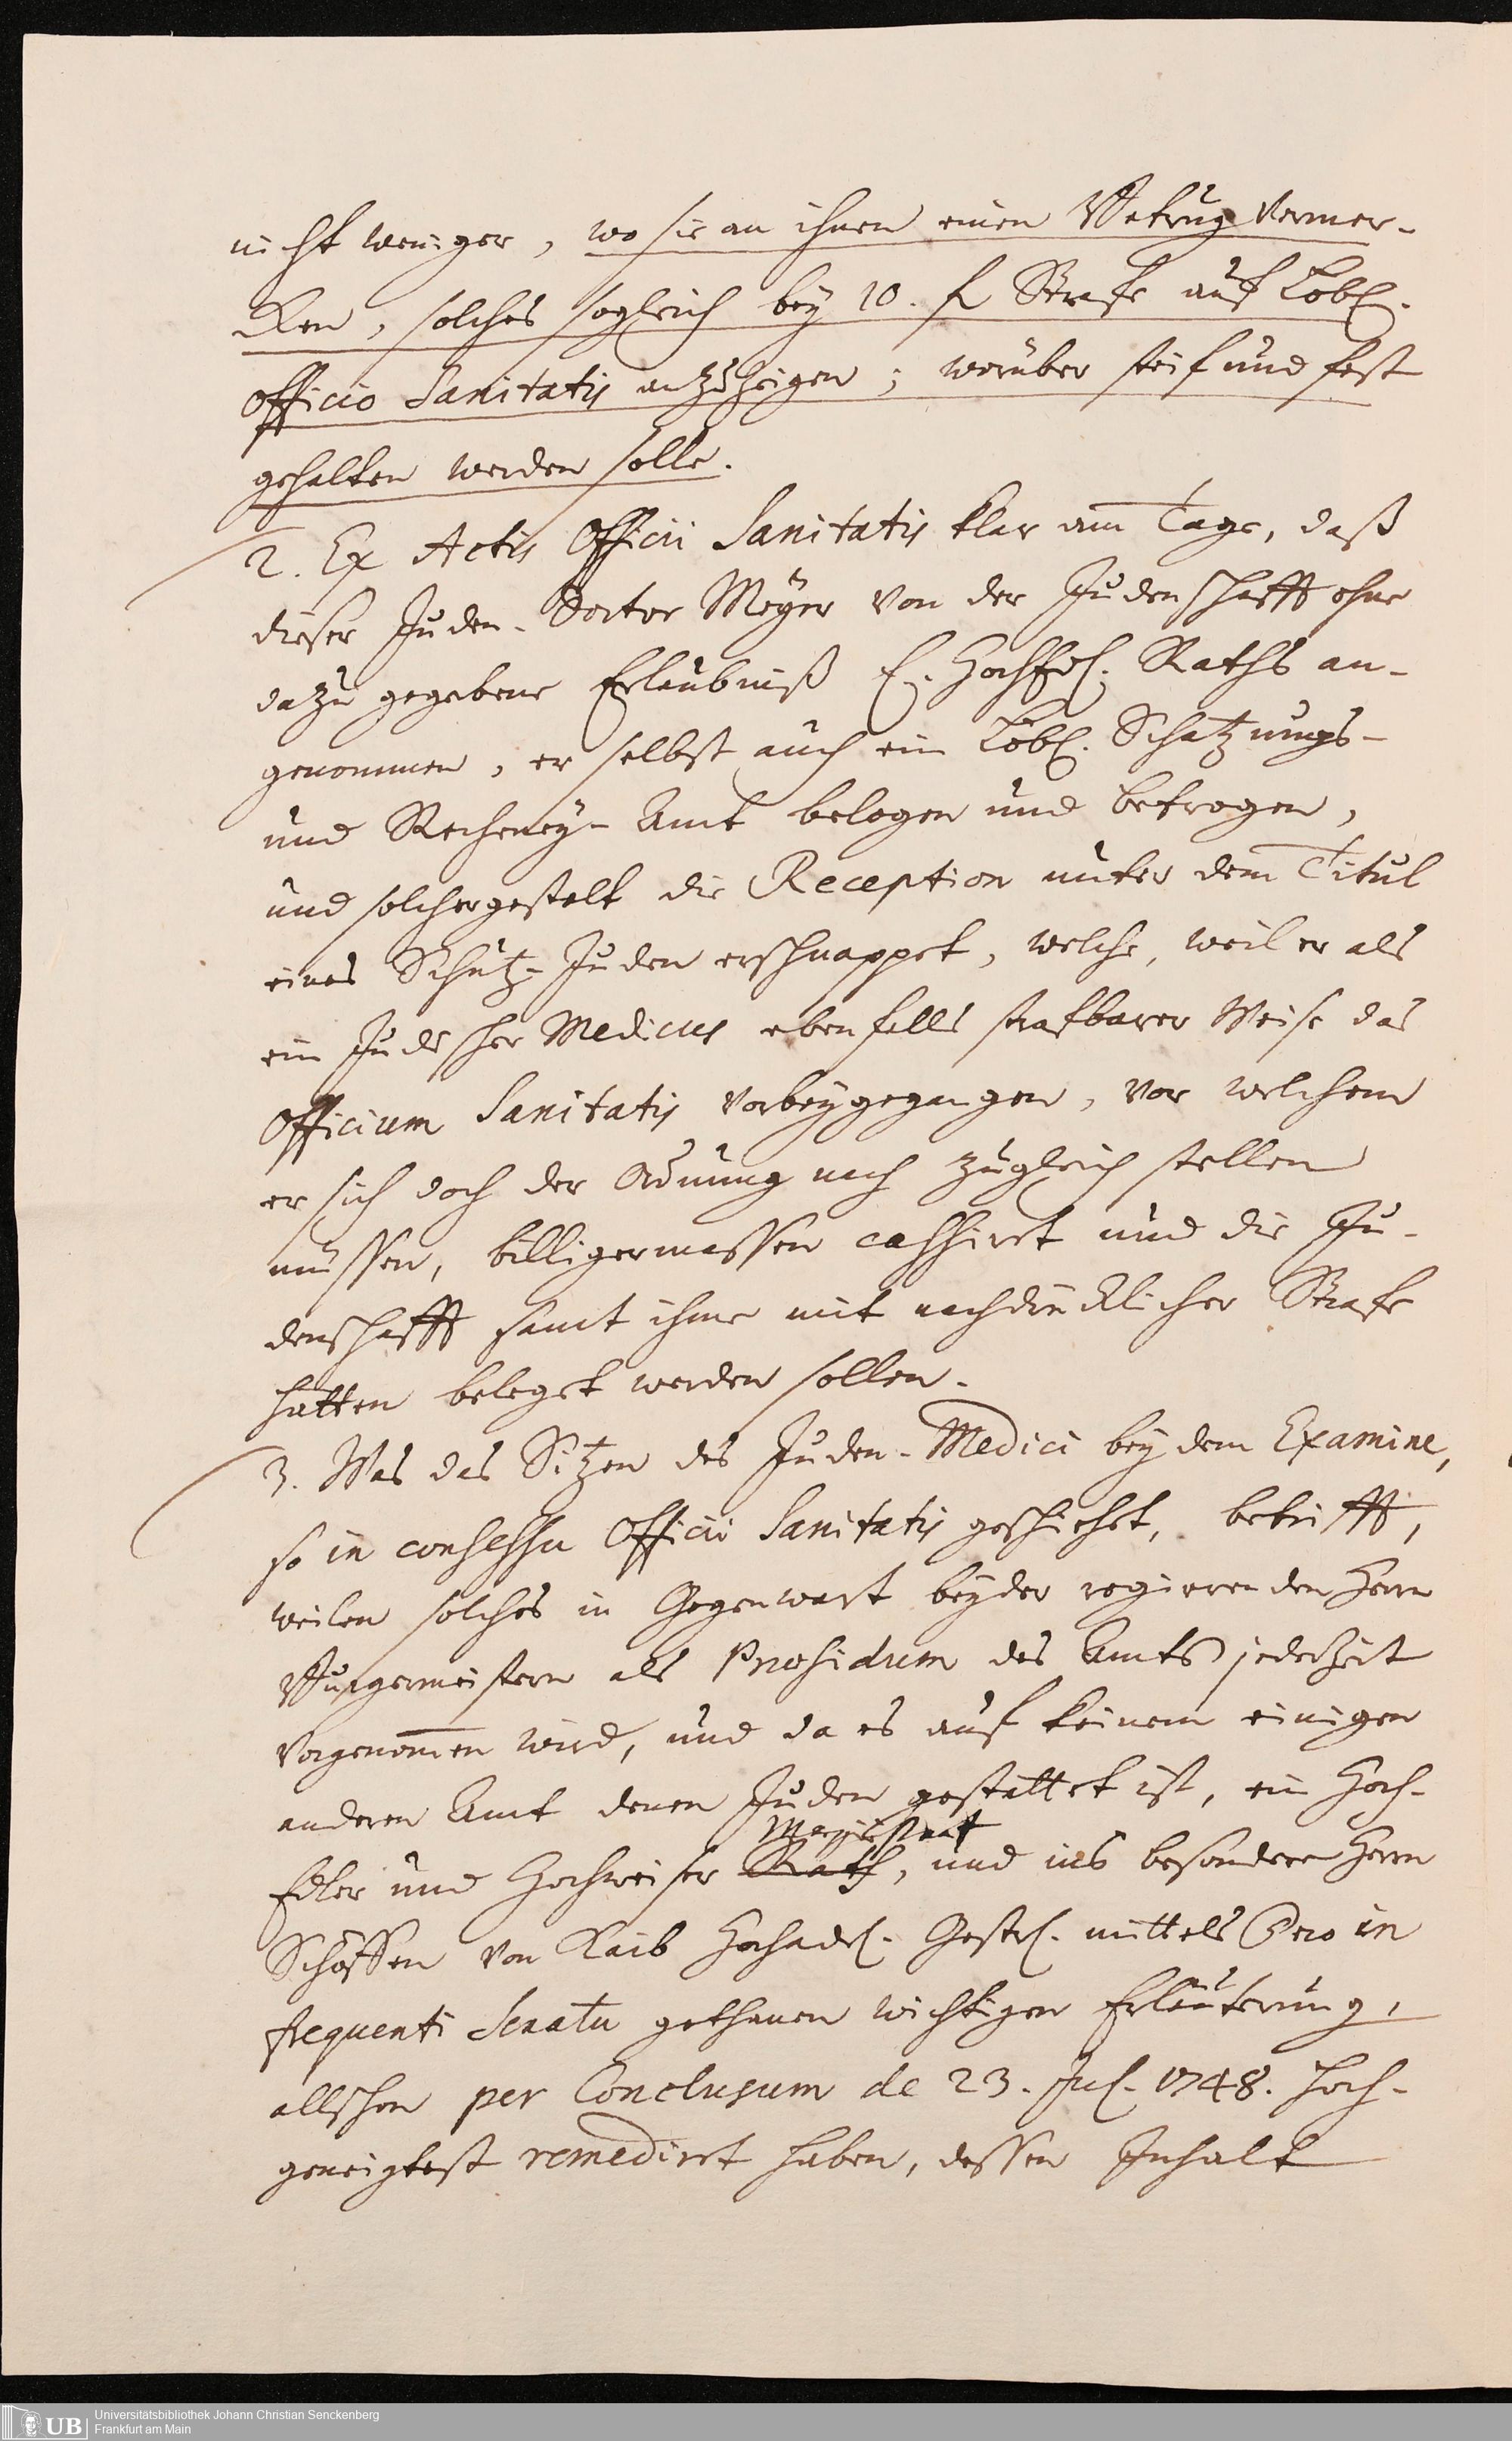 nicht weniger, wo sie an ihnen einen Betrug vermer-
cken, solches sogleich bey 10. fl Strafe auf Löbl.
Officio Sanitatis anzuzeigen; worüber steif und fest
gehalten werden solle.
2. Ex Actis Officii Sanitatis klar am Tage, daß
dieser Juden-Doctor Meyer von der Judenschafft ohne
dazu gegebene Erlaubniß E. Hochedl. Raths an-
genommen, er selbst auch ein Löbl. Schatzungs-
und Recheney-Amt belogen und betrogen,
und solchergestalt die Reception unter dem Titul
eines Schutz-Juden erschnappet, welche, weil er als
ein Judscher Medicus ebenfalls strafbarer Weise das
Officium Sanitatis vorbeygegangen, vor welchem
er sich doch der Ordnung nach zugleich stellen
müssen, billigermassen cassirt und die Ju-
denschafft samt ihme mit nachdrücklicher Strafe
hätten belegt werden sollen.
3. Was das Sitzen des Juden-Medici bey dem Examine,
so in consessu Officii Sanitatis geschiehet, betrifft,
weilen solches in Gegenwart beyder regierenden Herrn
Burgermeistern als Præsidum des Amts jederzeit
vorgenommen wird, und da es auf keinem einigen
anderen Amt denen Juden gestattet ist, ein Hoch-
Magistrat
Edler und Hochweiser Rath, und ins besondere Herrn
Schöffen von Kaib Hochadel. Gestr. mittels Dero in
frequenti Senatu gethanen wichtigen Erläuterung,
allschon per Conclusum de 23. Jul. 1748. hoch-
geneigtest remedirt haben, dessen Inhalt
Universitätsbibliothek Johann Christian Senckenberg
UB Frankfurt am Main